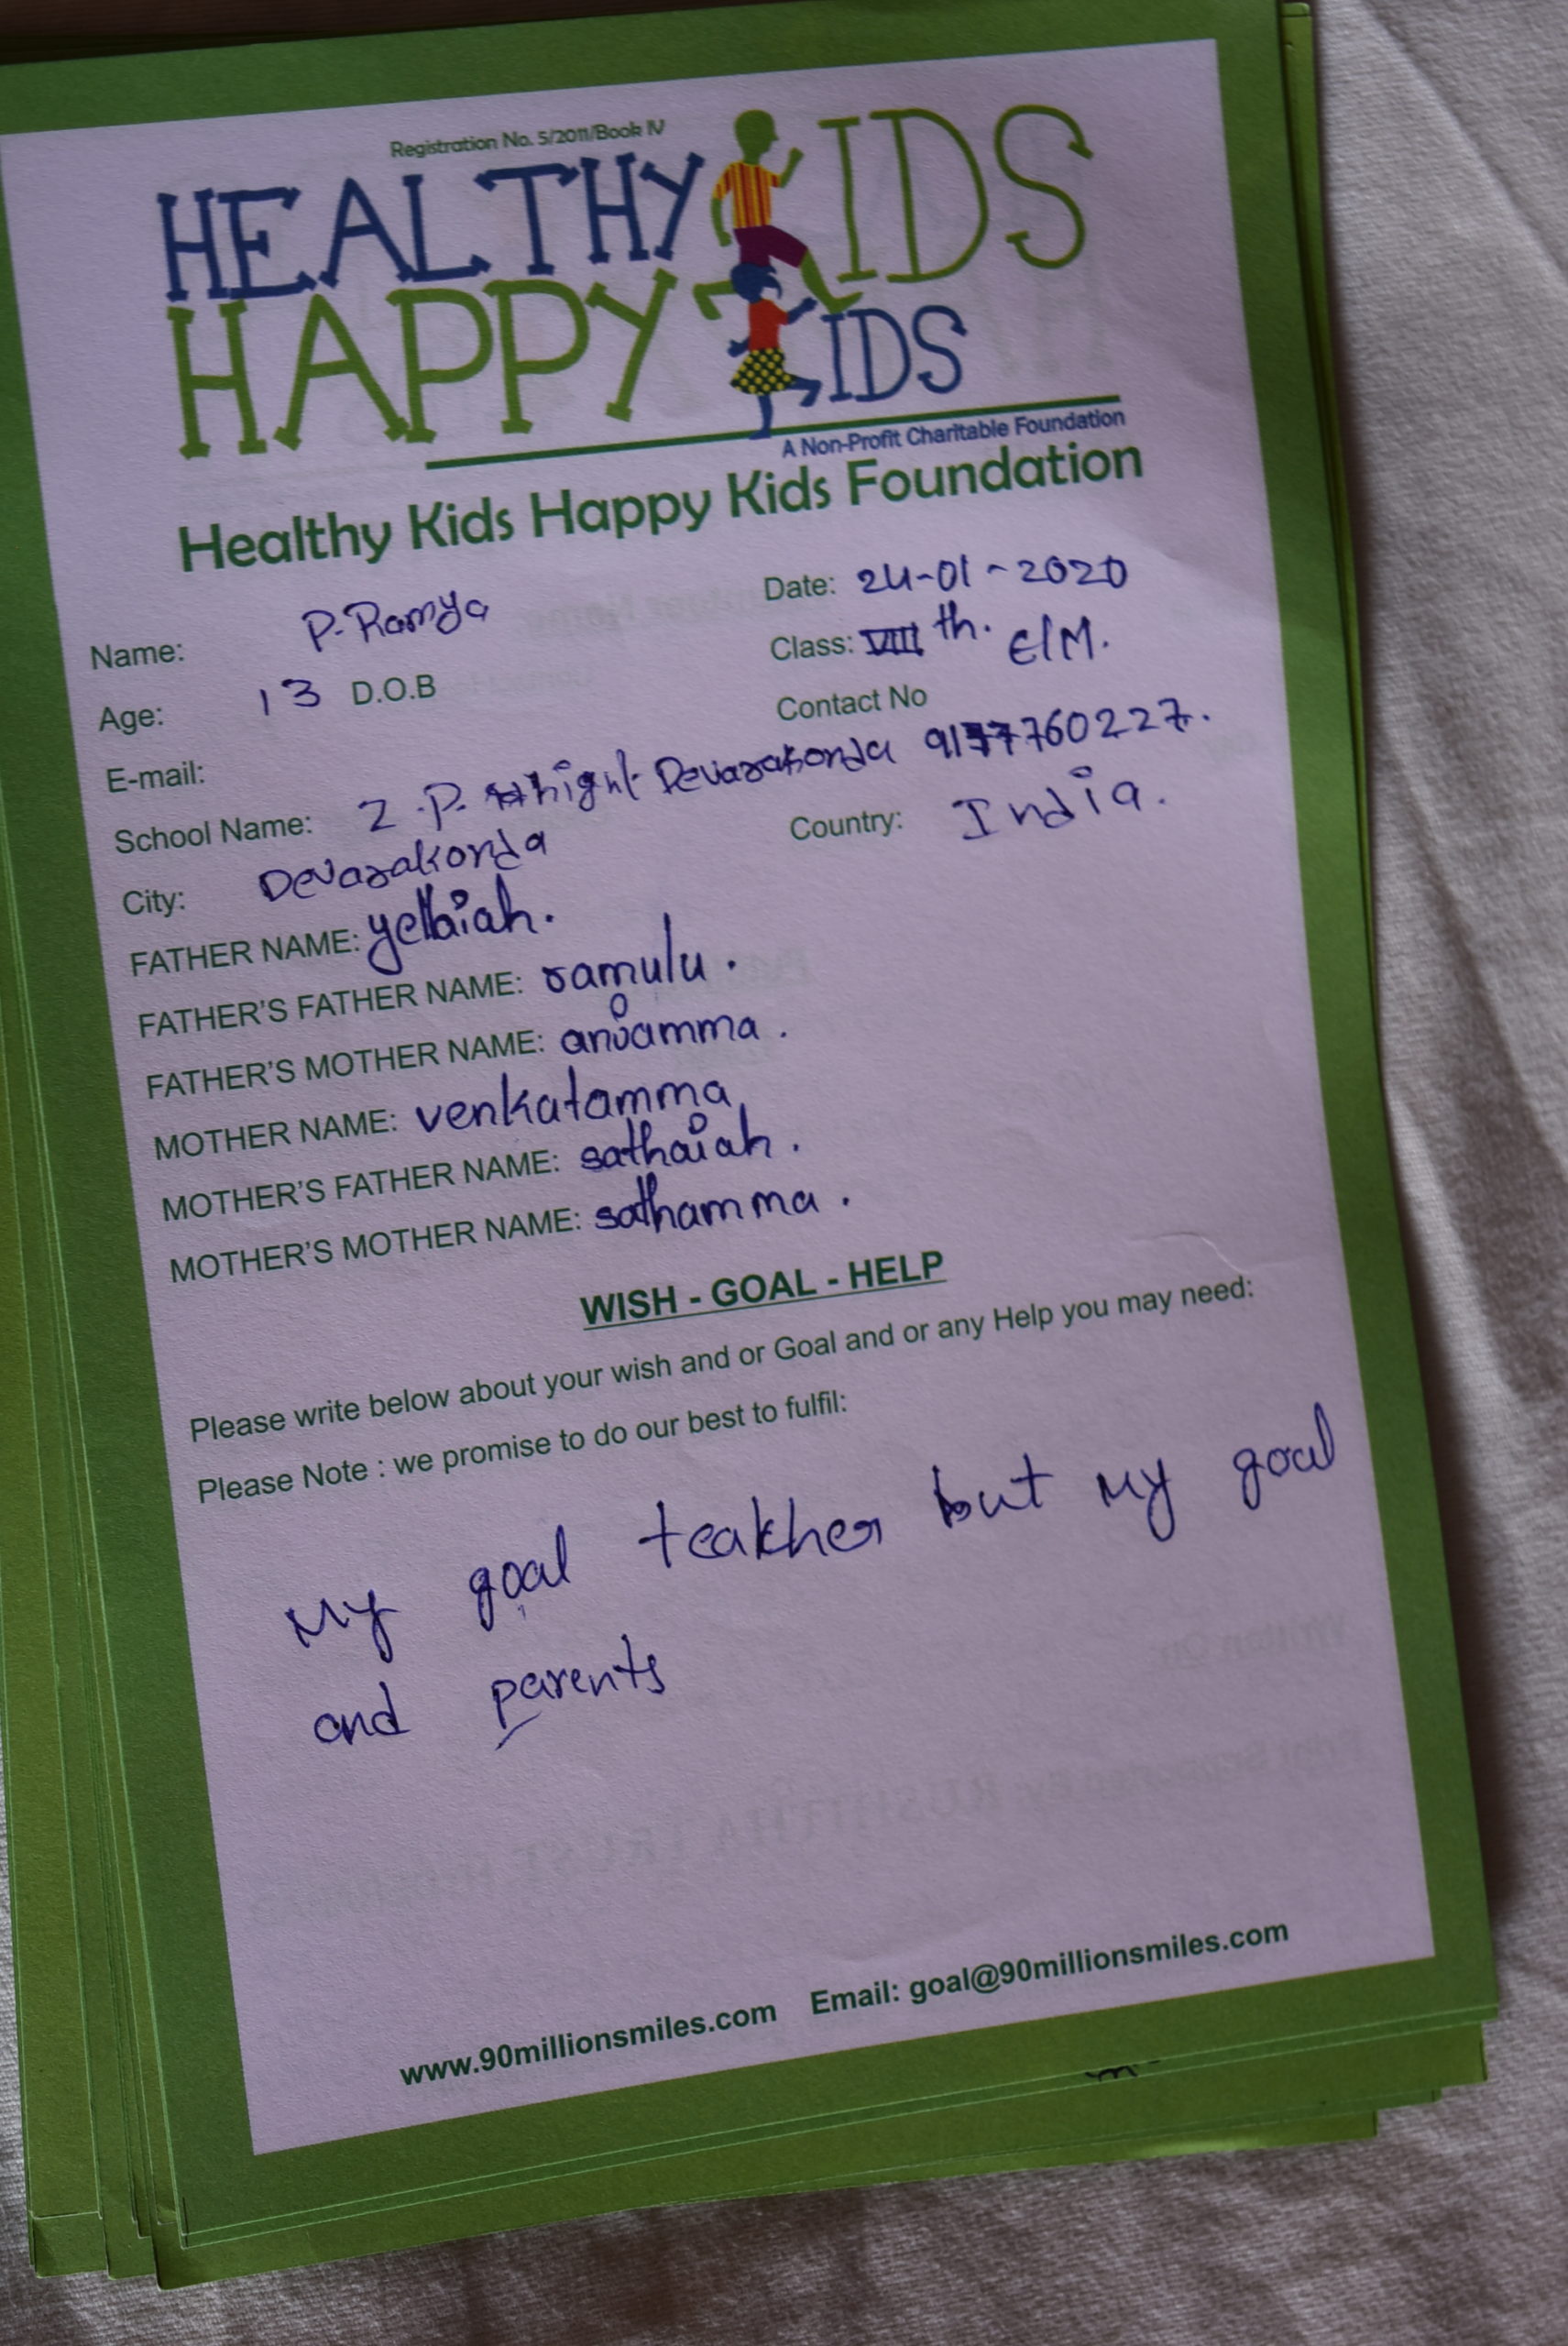 Registration No. 5/2011/Book IV
HEALTHY KIDS
HAPPY KIDS
A Non-Profit Charitable Foundation
Healthy Kids Happy Kids Foundation
Name: P. Ramya Date: 24-01-2020
Age: 13 D.O.B Class: VIII th. E/M.
E-mail: Contact No
School Name: Z.P. hight Devarakonda 9177760227.
City: Devarakonda Country: India.
FATHER NAME: yellaiah.
FATHER'S FATHER NAME: ramulu.
FATHER'S MOTHER NAME:
MOTHER NAME: venkatamma
MOTHER'S FATHER NAME: sathaiah.
MOTHER'S MOTHER NAME: sathamma.
WISH - GOAL - HELP
Please write below about your wish and or Goal and or any Help you may need:
Please Note : we promise to do our best to fulfil:
My goal teakher but My goal
and parents
www.90millionsmiles.com Email: goal@90millionsmiles.com